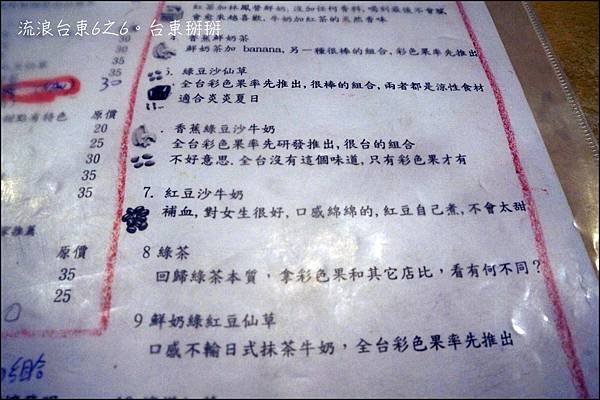 流浪台東6之6。台東掰掰
紅茶加林鳳營鮮奶,沒加任何香料,喝到最後不會膩
會來來越喜歡,牛奶加紅茶的天然香味
香蕉鮮奶茶
鮮奶茶加 banana,另一種很棒的組合,彩色果率先推出
綠豆沙仙草
全台彩色果率先推出,很棒的組合,兩者都是涼性食材
適合炎炎夏日
香蕉綠豆沙牛奶
全台彩色果率先研發推出,很台的組合
不好意思.全台沒有這個味道,只有彩色果才有
7. 紅豆沙牛奶
補血,對女生很好,口感綿綿的,紅豆自己煮,不會太甜
8 綠茶
回歸綠茶本質,拿彩色果和其它店比,看有何不同?
9 鮮奶綠紅豆仙草
口感不輸日式抹茶牛奶,全台彩色果率先推出
35
35
30
甜點有特色 原價
20
25
30
35
35
家推薦
原價
35
25